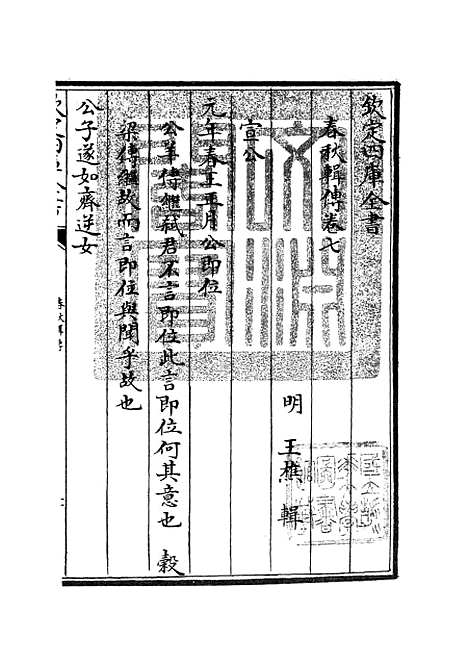 欽定四庫全書
春秋輯傳卷七
明 王樵 輯
宣公
元年春王正月公即位
公羊傳繼弑君不言即位此言即位何其意也 穀
梁傳繼故而言即位與聞乎故也
公子遂如齊逆女